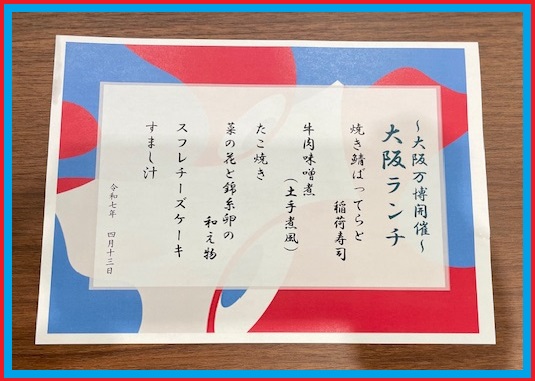 ～大阪万博開催～
大阪ランチ
焼き鯖ばってらと
稲荷寿司
牛肉味噌煮
（土手煮風）
たこ焼き
菜の花と錦糸卵の
和え物
スフレチーズケーキ
すまし汁
令和七年　四月十三日